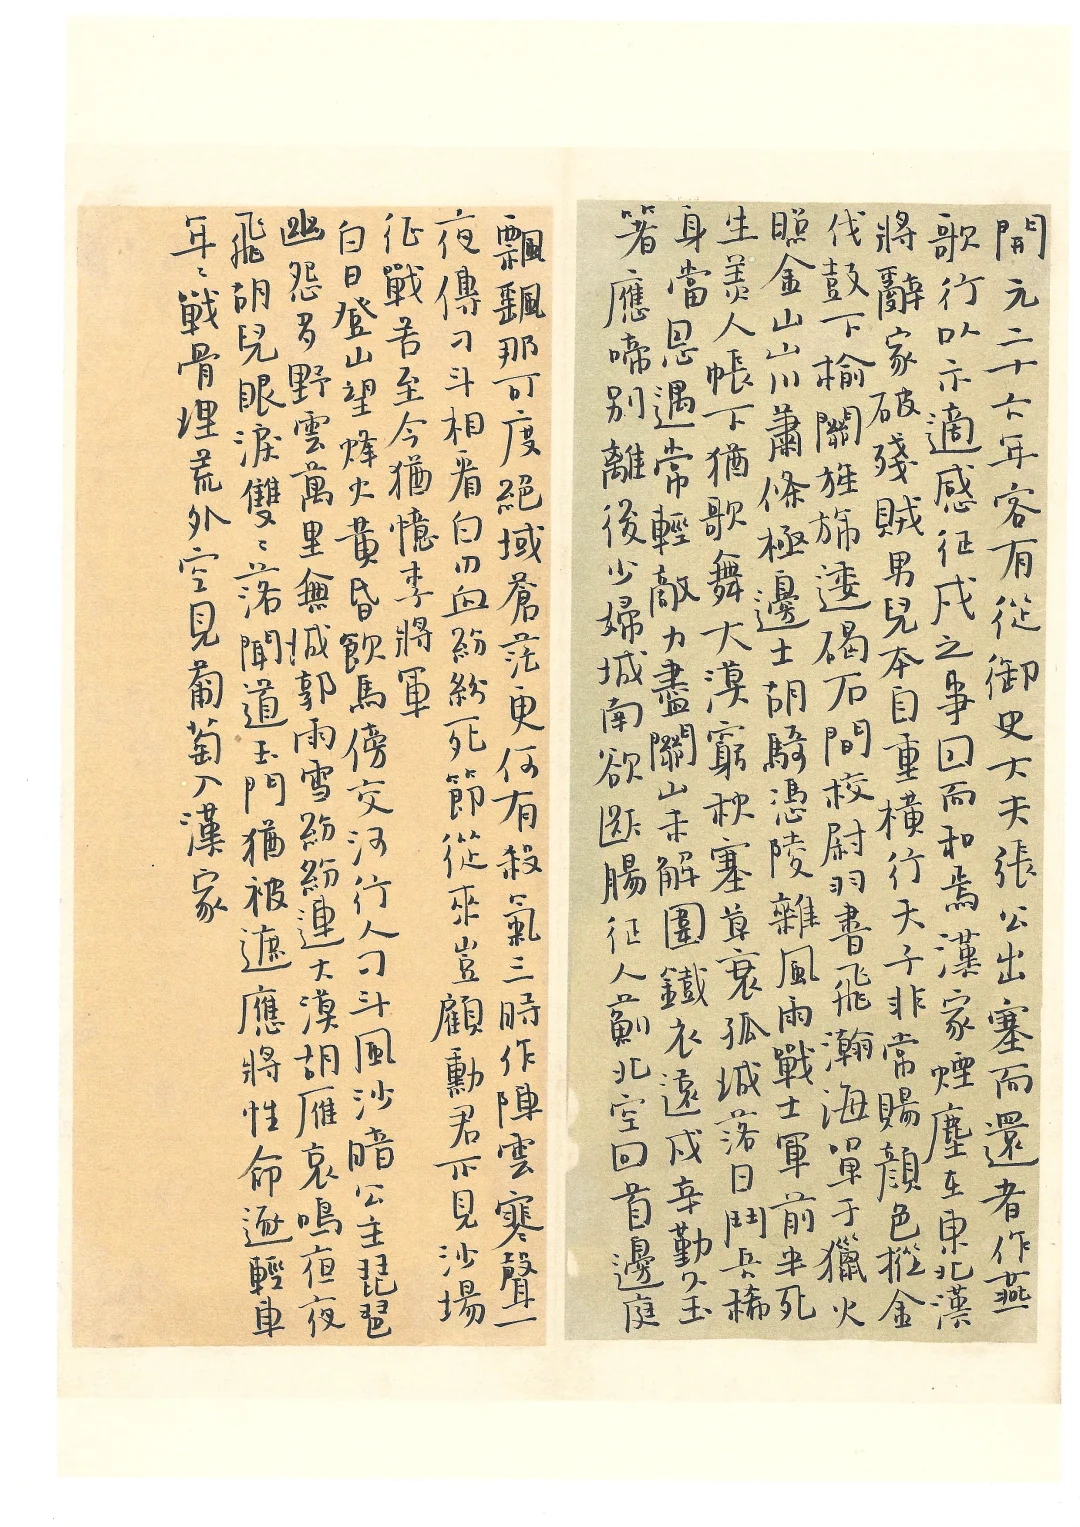 開元二十六年客有從御史大夫張公出塞而還者作燕
歌行以示適感征戍之事因而和焉漢家煙塵在東北漢
將辭家破殘賊男兒本自重橫行天子非常賜顏色摐金
伐鼓下榆關旌旆逶碣石間校尉羽書飛瀚海單于獵火
照金山山川蕭條極邊土胡騎憑陵雜風雨戰士軍前半死
生美人帳下猶歌舞大漠窮秋塞草衰孤城落日鬥兵稀
身當恩遇常輕敵力盡關山未解圍鐵衣遠戍辛勤久玉
箸應啼別離後少婦城南欲斷腸征人薊北空回首邊庭
飄飄那可度絕域蒼茫更何有殺氣三時作陣雲寒聲一
夜傳刁斗相看白刃血紛紛死節從來豈顧勳君不見沙場
征戰苦至今猶憶李將軍
白日登山望烽火黃昏飲馬傍交河行人刁斗風沙暗公主琵琶
幽怨多野雲萬里無城郭雨雪紛紛連大漠胡雁哀鳴夜夜
飛胡兒眼淚雙〻落聞道玉門猶被遮應將性命逐輕車
年〻戰骨埋荒外空見葡萄入漢家